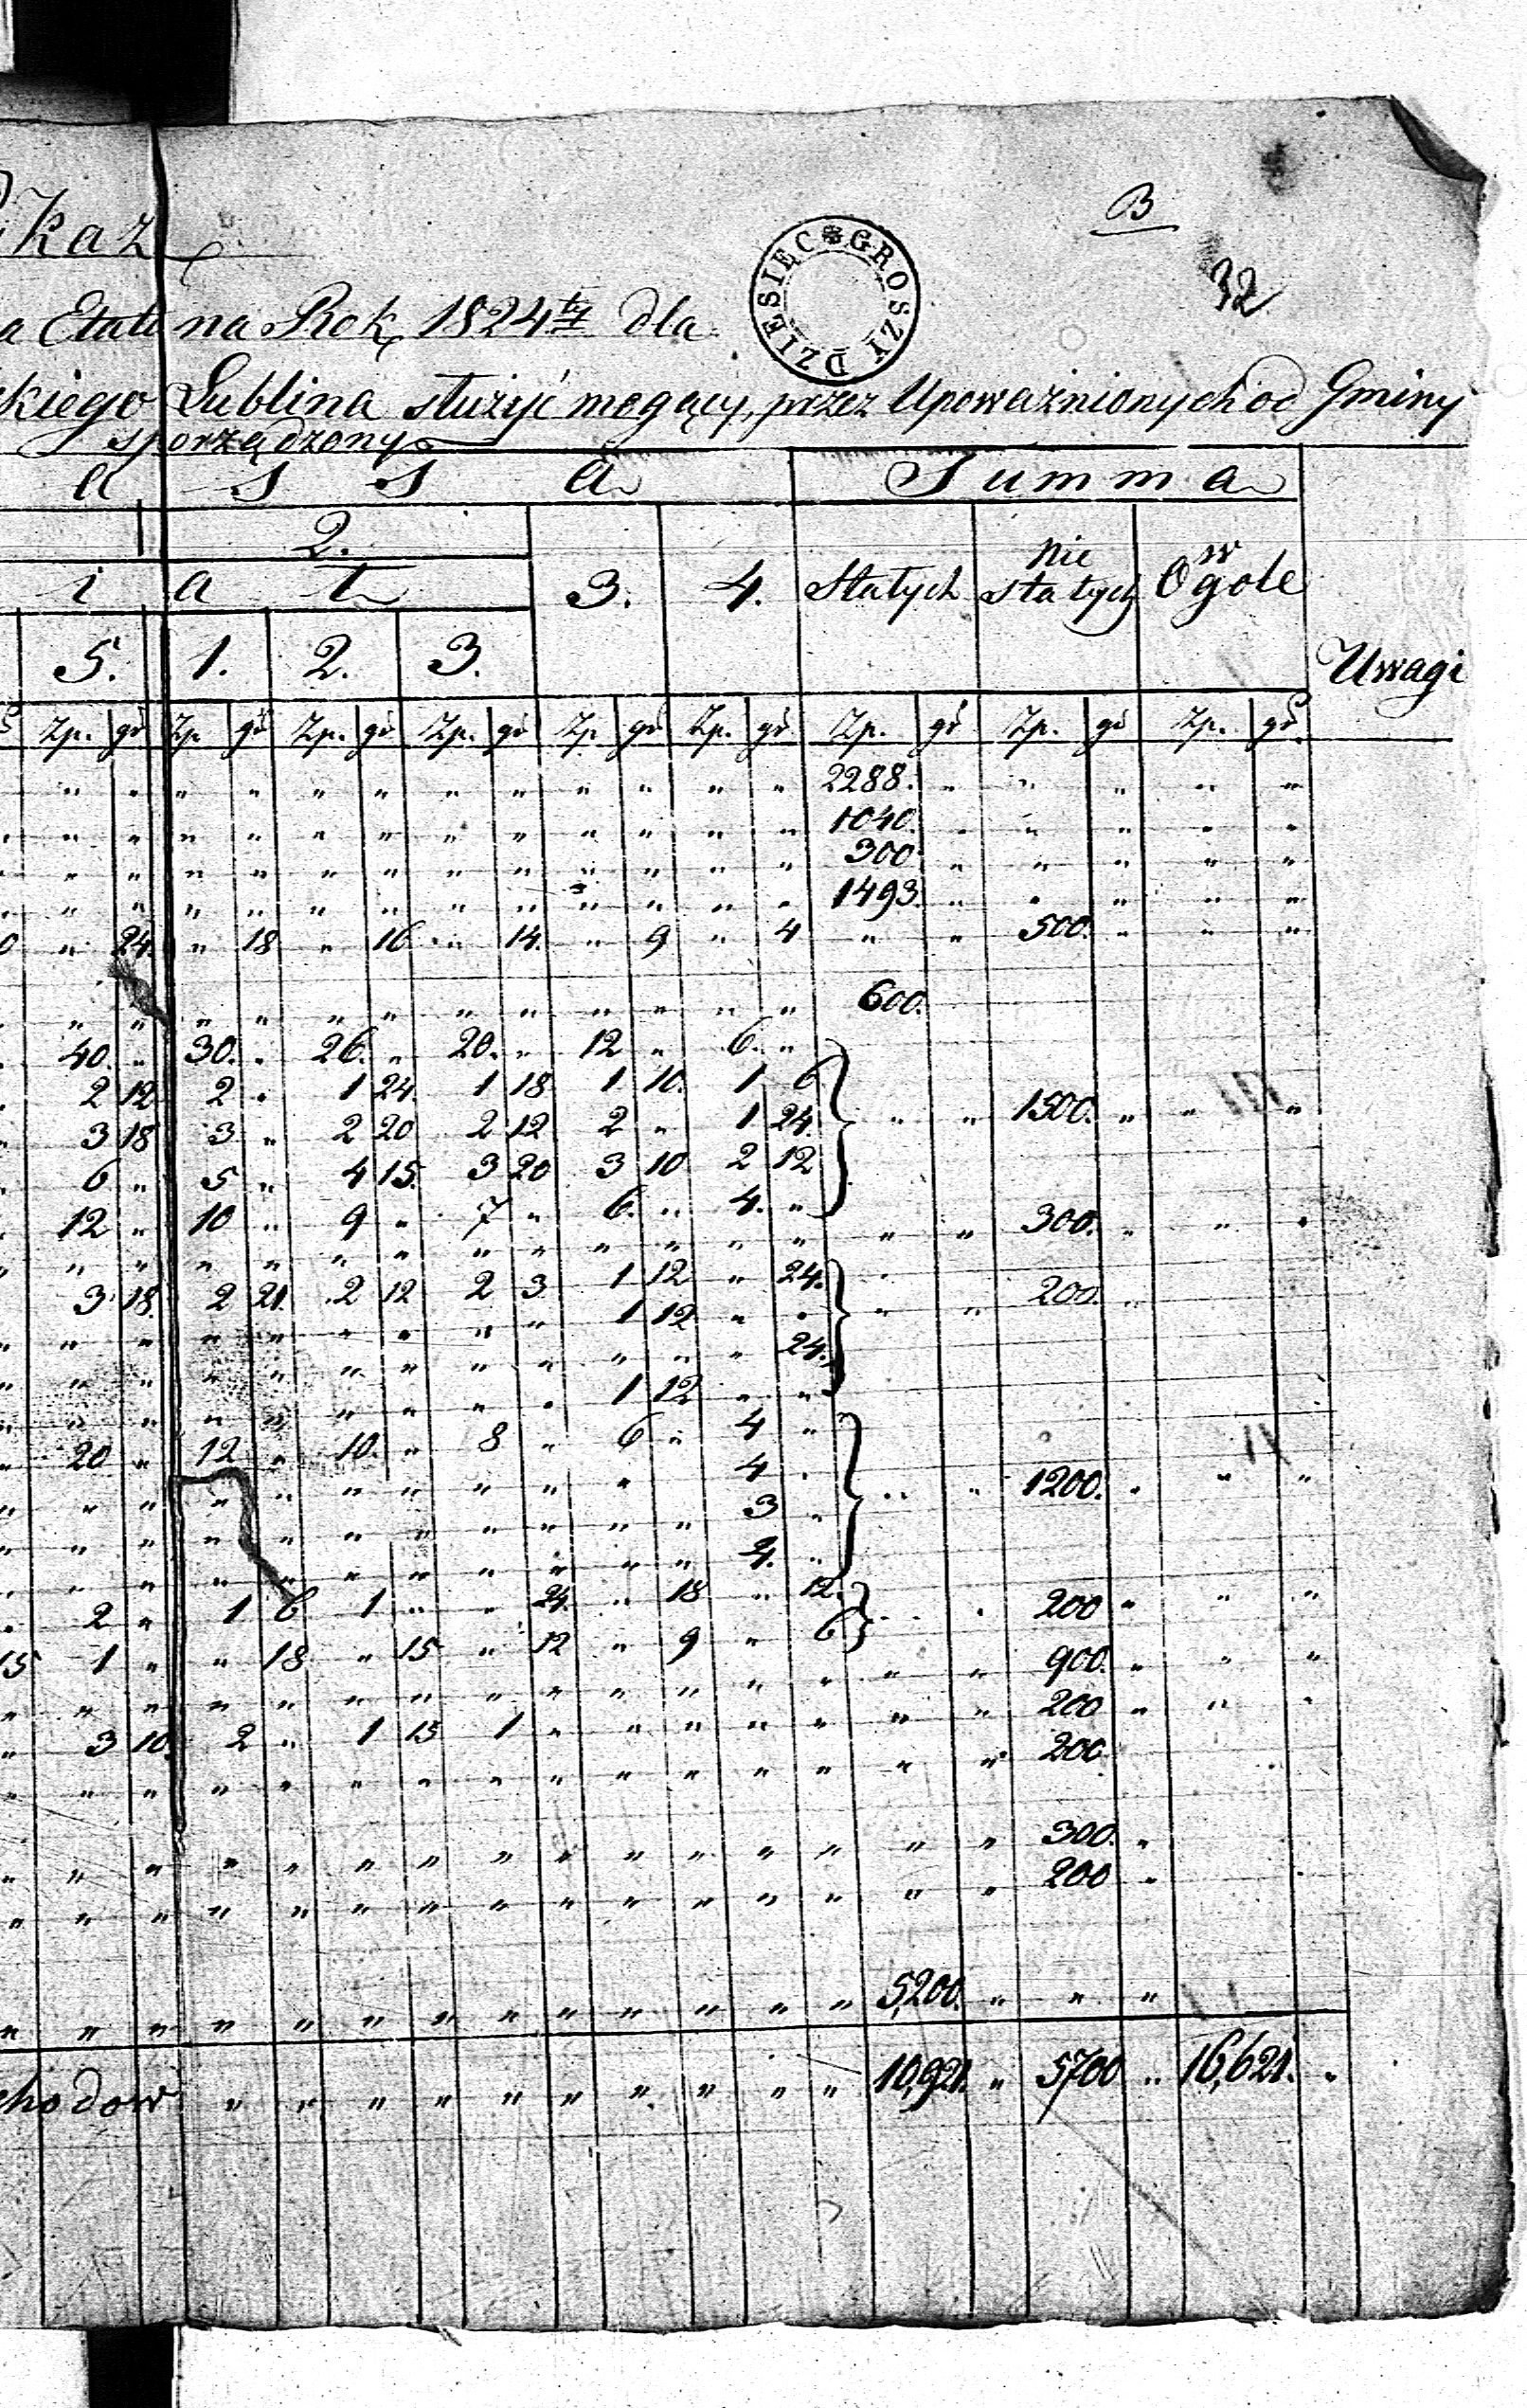 B
32
kaz
DZIESIĘĆ GROSZY
a Etatu na Rok 1824ty dla
skiego Lublina służyć mogący, przez Upoważnionych od Gminy
sporządzony
a s s a Summa
2. 3. 4. Stałych nie stałych w Ogole Uwagi
i a t
5. 1. 2. 3.
Zp. gr Zp. gr Zp. gr Zp. gr Zp. gr Zp. gr Zp. gr Zp. gr Zp. gr
" " " " " " " " " " " " 2288. " " " " "
" " " " " " " " " " " " 1040. " " " " "
" " " " " " " " " " " " 300 " " " " "
" " " " " " " " " " " " 1493. " " " " "
0 " 24. " 18 " 16 " 14. " 9 " 4 " " 500. " " "
" " " " " " " " " " " " 600.
40. " 30. " 26. " 20. " 12 " 6. "
2 12 2 " 1 24. 1 18 1 10. 1 6
3 18 3 " 2 20 2 12 2 " 1 24. " " 1500. " " "
6 " 5 " 4 15. 3 20 3 10 2 12
12 " 10 " 9 " 7 " 6. " 4. "
" " " " " " " " " " " " " " 300. " " "
3 18 2 21. 2 12 2 3 1 12 " 24.
" " " " " " " " 1 12 " " " " 200. "
" " " " " " " " " " " 24.
" " " " " " " " 1 12 " "
20 " 12 " 10. " 8 " 6 " 4 "
" " " " " " " " " 4 " " " 1200. " " "
" " " " " " " " " " 3 "
" " " " " " " " " " 4. "
2 " 1 6 1 " " 24. " 18 " 12. " " 200 " " "
15 1 " " 18 " 15 " 12 " 9 " 6
" " " " " " " " " " " " " " 900. " " "
3 10. 2 " 1 15 1 " " " " " " " 200 " " "
" " " " " " " " " " " " " " 200
" " " " " " " " " " " " " " 300. "
" " " " " " " " " " " " " " 200 "
" " " " " " " " " " " " 5,200. " " "
chodow " " " " " " " " " " 10,921. " 5700 " 16,621. "